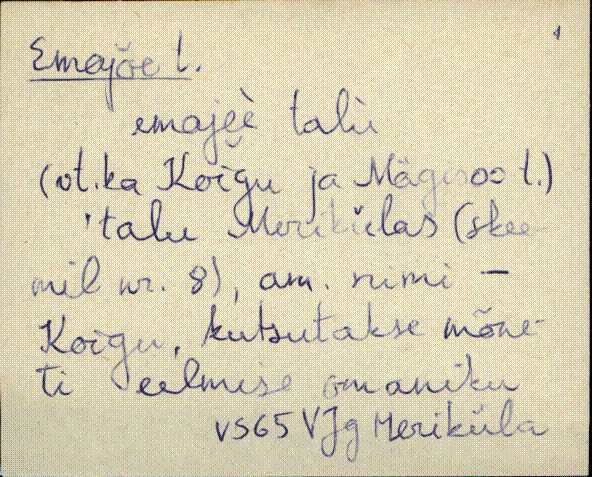 1
Emajõe t.
emajẽè talù
(vt. ka Koigu ja Mägisoo t.)
'talu Merikülas (skee-
mil nr. 8), am. nimi –
Koigu, kutsutakse mõne-
ti eelmise omaniku
VS65 VJg Meriküla